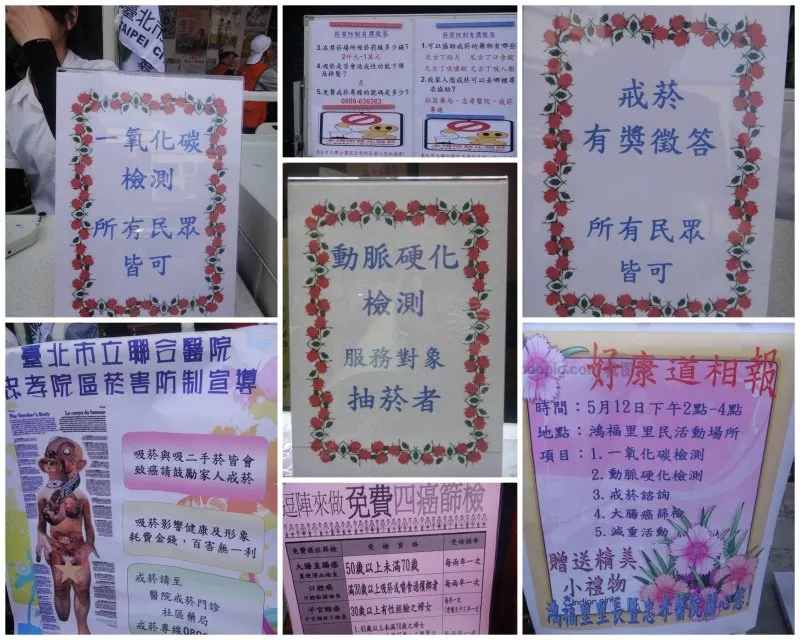 臺北市
TAIPEI
一氧化碳
檢測
所有民眾
皆可
菸害防制有獎徵答
3.在禁菸場所吸菸罰緩多少錢?
2仟元~1萬元
4.吸菸是否會造成性功能下降
及掉髮?
是
5.免費戒菸專線的號碼是多少?
0800-636363
菸害防制有獎徵答
1.可以協助戒菸的藥物有哪些
尼古丁貼片 尼古丁口香糖
2.我家人想戒菸可以去哪裡尋
求協助?
社區藥局、忠孝醫院、戒菸
專線
戒菸
有獎徵答
所有民眾
皆可
動脈硬化
檢測
服務對象
抽菸者
臺北市立聯合醫院
忠孝院區菸害防制宣導
The Smoker's Body
Le corps du fumeur
吸菸與吸二手菸皆會
致癌請鼓勵家人戒菸
吸菸影響健康及形象
耗費金錢,百害無一利
戒菸請至
醫院戒菸門診
社區藥局
戒菸專線080
逗陣來做免費四癌篩檢
免費癌症篩檢 受檢資格 受檢頻率
大腸直腸癌 50歲以上未滿70歲 每兩年一次
口腔癌 滿30歲以上吸菸或嚼食過檳榔者 每兩年一次
子宮頸癌 30歲以上有性經驗之婦女
好康道相報
時間:5月12日下午2點-4點
地點:鴻福里里民活動場所
項目:1.一氧化碳檢測
2.動脈硬化檢測
3.戒菸諮詢
4.大腸癌篩檢
5.減重活動
贈送精美
小禮物
鴻福里里長暨忠孝醫院關心您